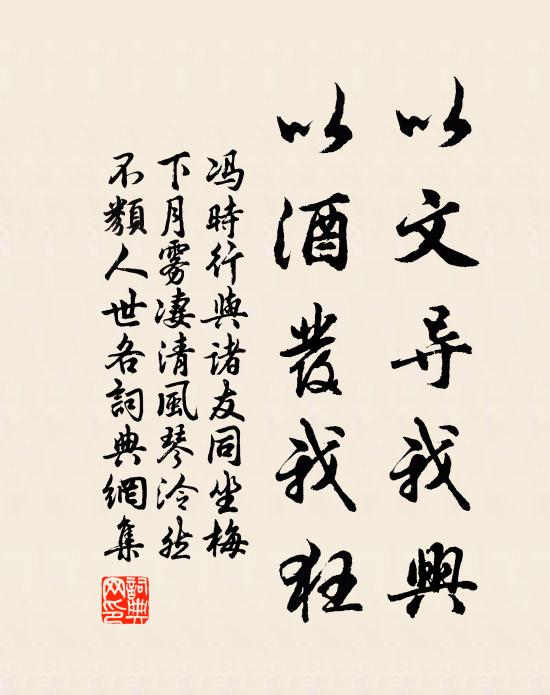 以文导我興
以酒發我狂
冯時行與诸友同坐梅
下月雾凄清風琴泠然
不類人世各詞典網集
詞典
网印